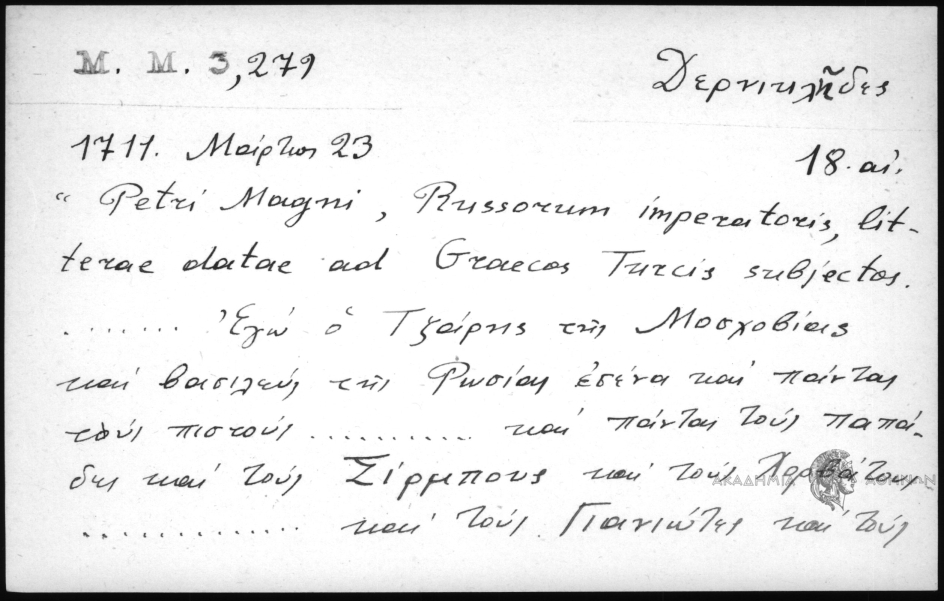 M. M. 3,279
Δερνικλῆδες
1711. Μάρτιος 23
18. αἰ.
“ Petri Magni, Russorum imperatoris, lit-
terae datae ad Graecos Turcis subjectos.
........ Ἐγώ ὁ Τζάρης τῆς Μοσχοβίας
καί βασιλεύς τῆς Ρωσίας ἐσένα καί πάντας
τούς πιστούς .......... καί πάντας τούς παπά-
δες καί τούς Σίρμπους καί τούς Χαρβάτους
............. καί τούς Γιανιώτες καί τούς
ΑΚΑΔΗΜΙΑ ΑΘΗΝΩΝ